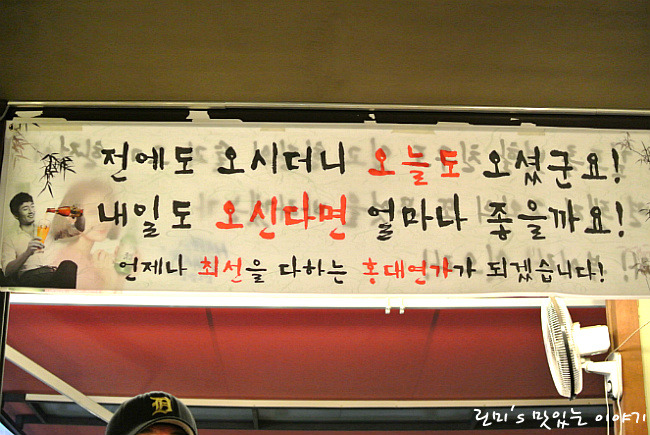 전에도 오시더니 오늘도 오셨군요!
내일도 오신다면 얼마나 좋을까요!
언제나 최선을 다하는 홍대연가가 되겠습니다!
D
린미's 맛있는 이야기